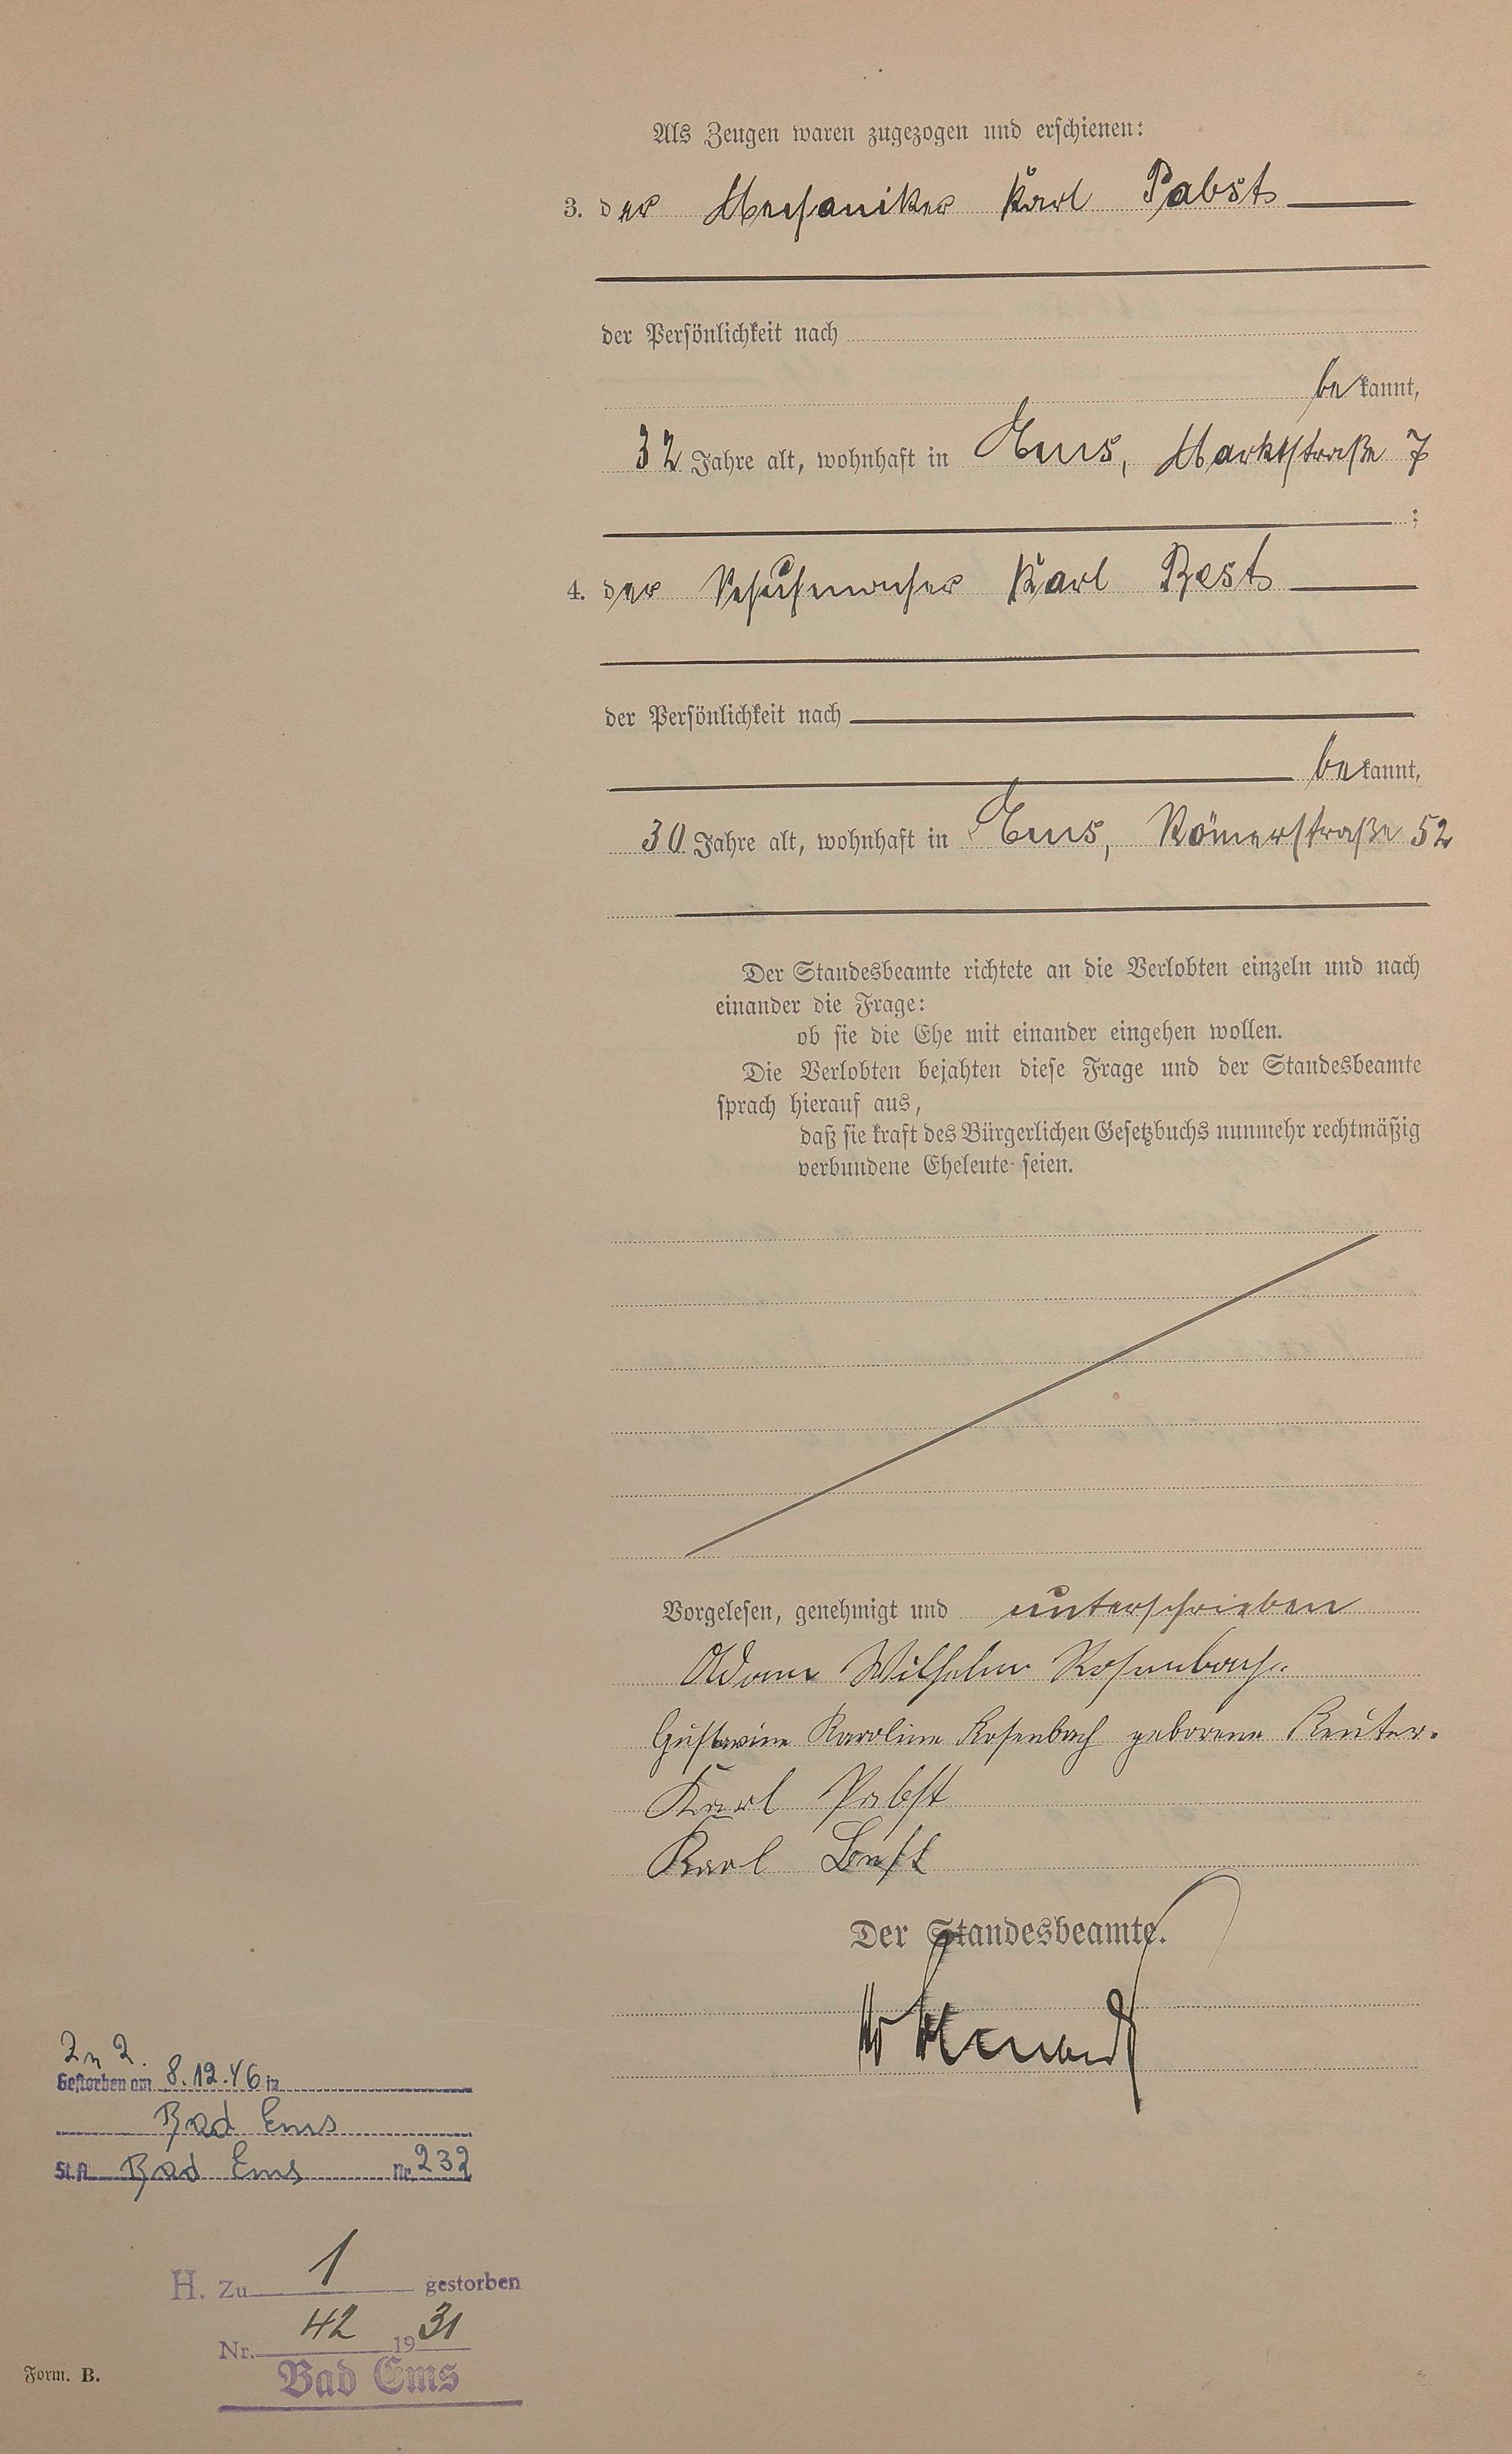 Als Zeugen waren zugezogen und erschienen:
3. der Mechaniker Karl Pabst
der Persönlichkeit nach
bekannt,
32 Jahre alt, wohnhaft in Ems, Marktstraße 7
;
4. der Schuhmacher Karl Best
der Persönlichkeit nach
bekannt,
30 Jahre alt, wohnhaft in Ems, Römerstraße 52
Der Standesbeamte richtete an die Verlobten einzeln und nach
einander die Frage:
ob sie die Ehe mit einander eingehen wollen.
Die Verlobten bejahten diese Frage und der Standesbeamte
sprach hierauf aus,
daß sie kraft des Bürgerlichen Gesetzbuchs nunmehr rechtmäßig
verbundene Eheleute seien.
Vorgelesen, genehmigt und unterschrieben
Adam Wilhelm Rosenbach.
Gustavine Karoline Rosenbach geborene Reuter.
Karl Pabst
Karl Best
Der Standesbeamte.
Zu 2.
Gestorben am 8.12.46 in
Bad Ems
St.A. Bad Ems Nr. 232
H. Zu 1 gestorben
Nr. 42 1931
Bad Ems
Form. B.